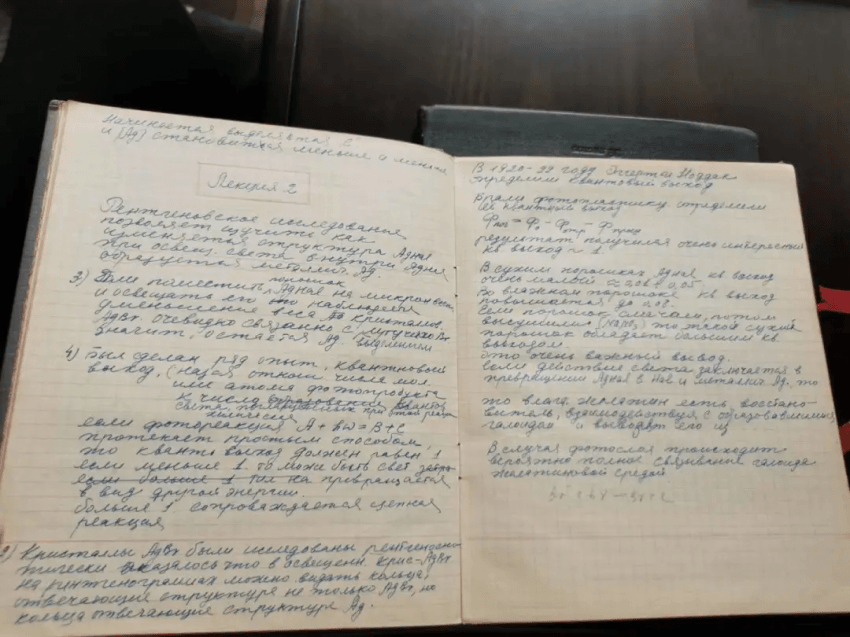 Начинает выделяться
и [Ag] становится меньше и меньше
Лекция 2
Рентгеновское исследование
позволяет изучить как
изменяется структура AgHal
при освещ. света внутри AgHal
образуется металлич. Ag.
3) Если поместить порошок
AgHal на микровесы
и освещать его то наблюдается
уменьшение веса кристаллов
AgBr очевидно связанно с летучестью Br
значит, остаётся Ag выделением
4) Был сделан ряд опыт. квантовый
выход, (назв отнош числа мол.
или атомов фотопродукта
к числу квантов
света, поглощённых при этой реак
если фотореакция A + hω = B + C
протекает простым способом,
то квант. выход должен равен 1
если меньше 1. то може быть свет
если больше 1 на превращается
в вид другой энергии.
больше 1 сопровождается цепная
реакция
2) Кристаллы AgBr были исследованы рентгеногра-
фически оказалось что в освещенн. крис-AgBr
на рентгенограммах можно видать кольца,
отвечающие структуре не только AgBr, но
кольца отвечающие структуре Ag.
В 1920-22 году Эггерт и Ноддак
определили квантовый выход
Брали фотопластинку определили
её квантовый выход
Ф = Ф - Ф - Ф
результат получился очень интересный
кв выход ≈ 1
В сухих порошках AgHal кв выход
очень малый ≈ 0,05
Во влажном порошке кв выход
повышается до 0,8.
Если порошок смачали, потом
высушили (NaNO₂) то такой сухой
порошок обладает большим кв
выходом.
Это очень важный вывод.
если действие света заключается в
превращении AgHal в Hal и металлич. Ag, то
то влага, желатин есть, восстано-
витель, взаимодействуя, с образовавшимся
галоидом и выводят его из
В случая фотослоя происходит
вероятно полное связывание галоида
желатиновой средой